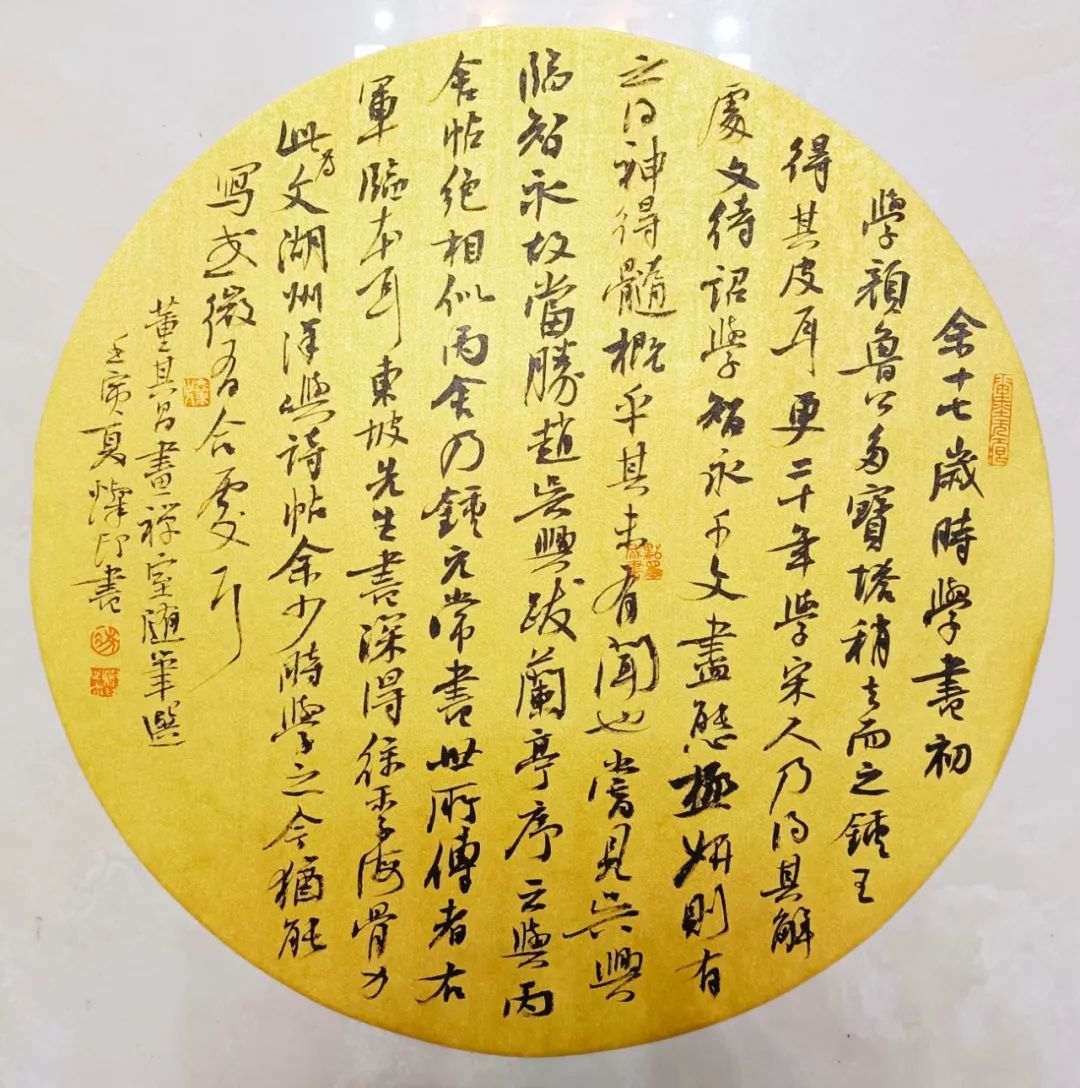 余十七歲時學書初
學顏魯公多寶塔稍去而之鍾王
得其皮耳更二十年學宋人乃得其解
處文待詔學智永千文盡態極妍則有
之得神得髓概乎其未有聞也嘗見吳興
臨智永故當勝趙吳興跋蘭亭序云與丙
舍帖絕相似丙舍乃鍾元常書世所傳者右
軍臨本耳東坡先生書深得徐季海骨力
此為文湖州洋嶼詩帖余少時學之今猶能
寫或微有合處耳
董其昌畫禪室隨筆選
壬寅夏書